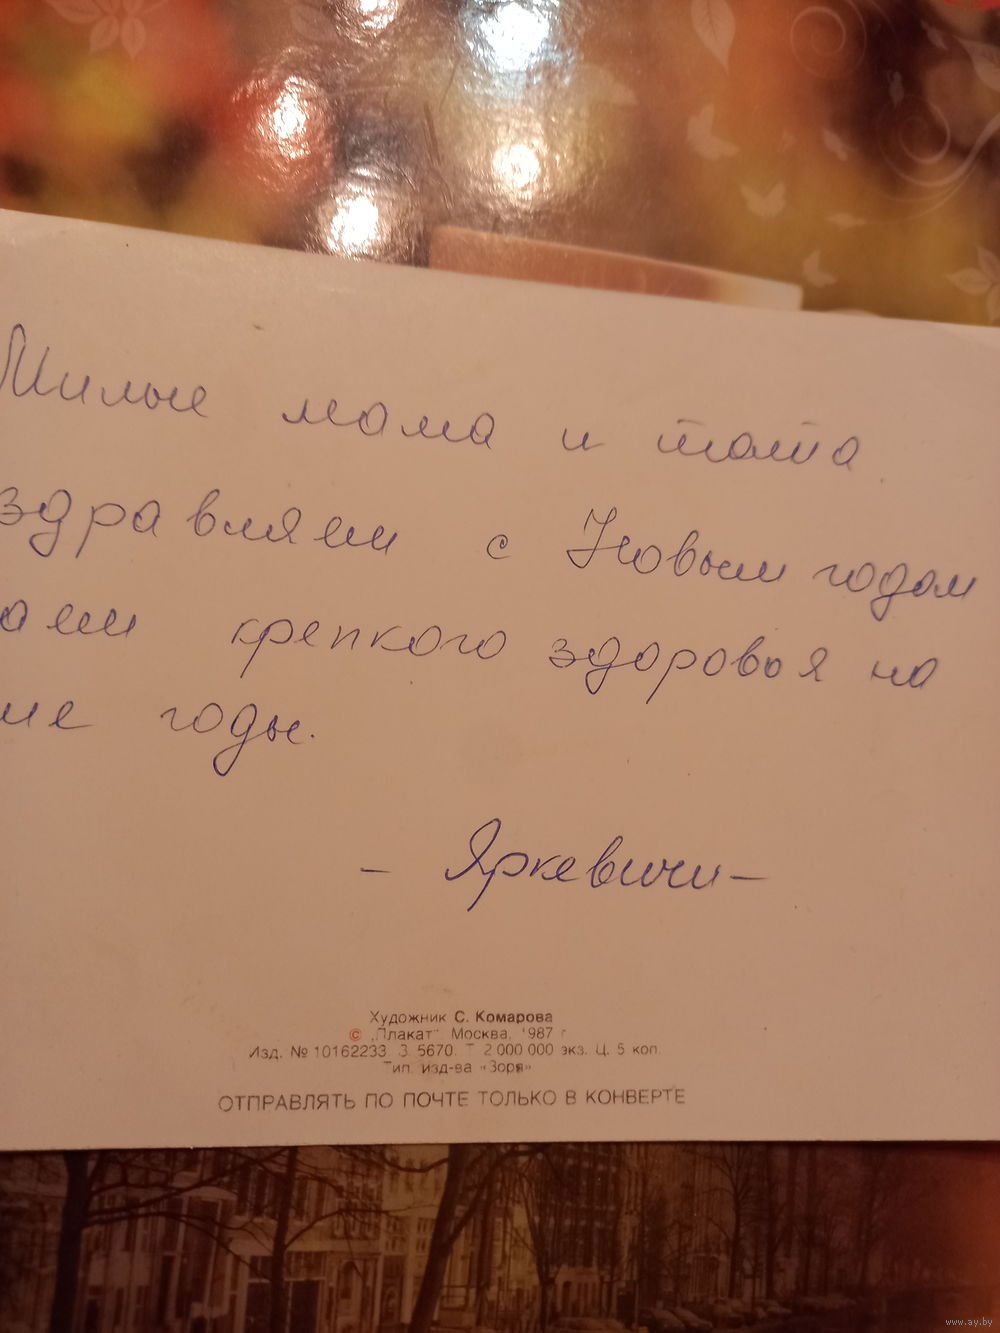 Милые мама и тата
здравляем с Новым годом
аем крепкого здоровья на
ие годы.
- Яркевичи -
Художник С. Комарова
© „Плакат" Москва, 1987 г.
Изд. № 10162233. З. 5670. Т. 2 000 000 экз. Ц. 5 коп.
Тип. изд-ва «Зоря»
ОТПРАВЛЯТЬ ПО ПОЧТЕ ТОЛЬКО В КОНВЕРТЕ
www.ay.by